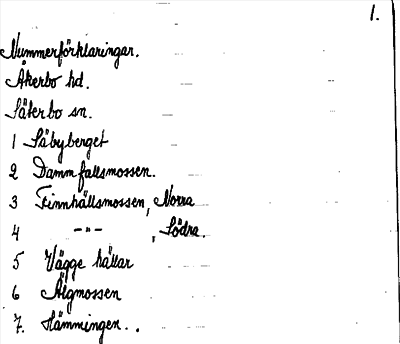 1.
Nummerförklaringar.
Åkerbo hd.
Säterbo sn.
1 Säbyberget
2 Dammfallsmossen.
3 Finnhällsmossen, Norra
4 -"- , Södra.
5 Vägge hällar
6 Älgmossen
7. Hämmingen..